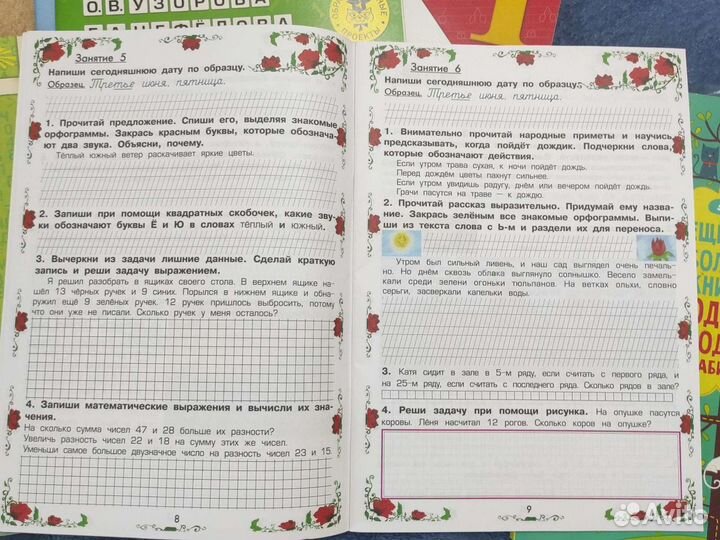 О.В. УЗОРОВА
Занятие 5
Напиши сегодняшнюю дату по образцу.
Образец. Третье июня. пятница.
1. Прочитай предложение. Спиши его, выделяя знакомые
орфограммы. Закрась красным буквы, которые обознача-
ют два звука. Объясни, почему.
Тёплый южный ветер раскачивает яркие цветы.
2. Запиши при помощи квадратных скобочек, какие зву-
ки обозначают буквы Ё и Ю в словах тёплый и южный.
3. Вычеркни из задачи лишние данные. Сделай краткую
запись и реши задачу выражением.
Я решил разобрать в ящиках своего стола. В верхнем ящике на-
шёл 13 чёрных ручек и 9 синих. Порылся в нижнем ящике и обна-
ружил ещё 9 зелёных ручек. 12 ручек пришлось выбросить, потому
что они уже не писали. Сколько ручек у меня осталось?
4. Запиши математические выражения и вычисли их зна-
чения.
На сколько сумма чисел 47 и 28 больше их разности?
Увеличь разность чисел 22 и 18 на сумму этих же чисел.
Уменьши самое большое двузначное число на разность чисел 23 и 15.
8
Занятие 6
Напиши сегодняшнюю дату по образцу.
Образец. Третье июня. пятница.
1. Внимательно прочитай народные приметы и научись
предсказывать, когда пойдёт дождик. Подчеркни слова,
которые обозначают действия.
Если утром трава сухая, к ночи пойдёт дождь.
Перед дождём цветы пахнут сильнее.
Если утром увидишь радугу, днём или вечером пойдёт дождь.
Грачи пасутся на траве – к дождю.
2. Прочитай рассказ выразительно. Придумай ему назва-
ние. Закрась зелёным все знакомые орфограммы. Выпи-
ши из текста слова с Ь-м и раздели их для переноса.
Утром был сильный ливень, и наш сад выглядел очень печаль-
но. Но днём сквозь облака выглянуло солнышко. Весело замель-
кали среди зелени огоньки тюльпанов. На ветках ольхи, словно
серьги, засверкали капельки воды.
3. Катя сидит в зале в 5-м ряду, если считать с первого ряда, и
на 25-м ряду, если считать с последнего ряда. Сколько рядов в зале?
4. Реши задачу при помощи рисунка. На опушке пасутся
коровы. Лёня насчитал 12 рогов. Сколько коров на опушке?
9
Avito